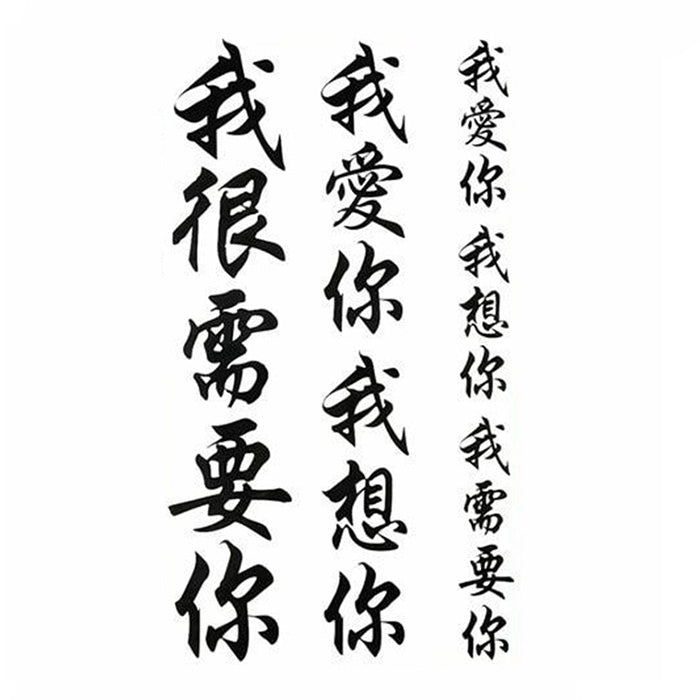 我愛你我想你我需要你
我愛你我想你
我很需要你